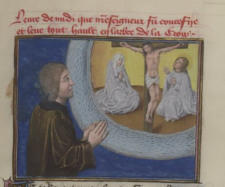 Leure de midi que mseigneur fu crucefije
et leve tout hault en larbre de la Croix